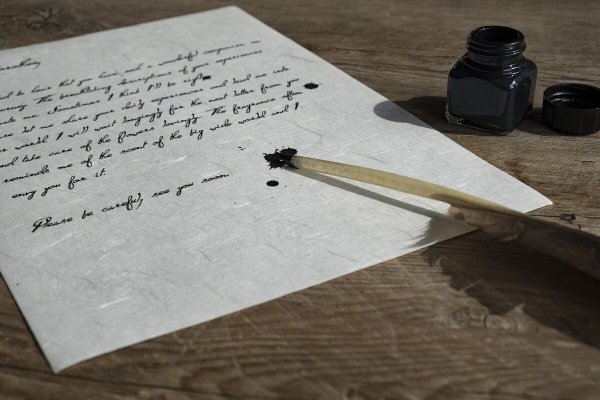 to hear that you have and a wonderful companion on
journey. The breathtaking descriptions of your experiences
me. Sometimes I think I'll be right
but me share your daily experiences and lead me into
world. I will wait longingly for the next letter from you
and take care of the flowers lovingly. The fragrance often
reminds me of the scent of the big wide world and I
envy you for it.
Please be careful, see you soon